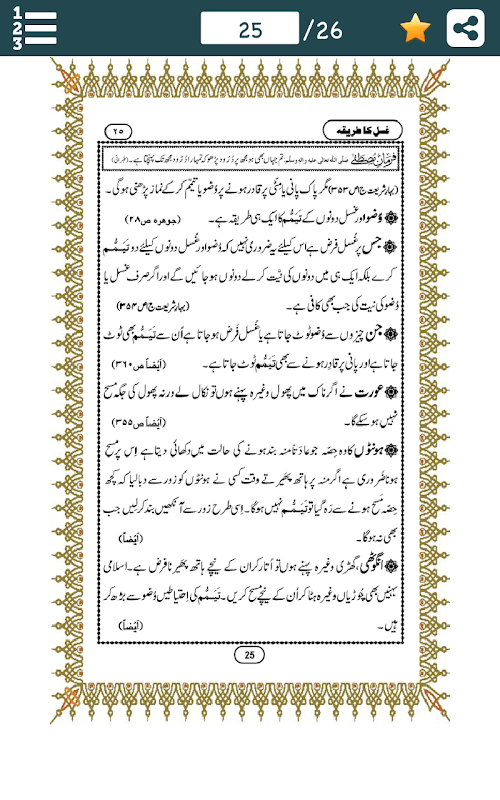 1
2
3
25
/26
۲۵
غسل کا طریقہ
فرمانِ مصطفےٰ صلی اللہ تعالیٰ علیہ والہ وسلم: تم جہاں بھی ہو مجھ پر دُرُود پڑھو کہ تمہارا دُرُود مجھ تک پہنچتا ہے۔ (طبرانی)
(بہارِ شریعت ج۱ ص۳۵۳) مگر پاک پانی یا مِٹّی پر قادر ہونے پر وُضو یا تیمّم کر کے نماز پڑھنی ہوگی۔
وُضو اور غسل دونوں کے تَیَمُّم کا ایک ہی طریقہ ہے۔ (جوہرہ ص۲۸)
جس پر غُسل فرض ہے اس کیلئے یہ ضروری نہیں کہ وُضو اور غُسل دونوں کیلئے دو تَیَمُّم
کرے بلکہ ایک ہی میں دونوں کی نیّت کر لے دونوں ہو جائیں گے اور اگر صرف غسل یا
وُضو کی نیت کی جب بھی کافی ہے۔ (بہارِ شریعت ج۱ ص۳۵۴)
جن چیزوں سے وُضو ٹوٹ جاتا ہے یا غُسل فَرض ہو جاتا ہے اُن سے تَیَمُّم بھی ٹوٹ
جاتا ہے اور پانی پر قادِر ہونے سے بھی تَیَمُّم ٹوٹ جاتا ہے۔ (اَیضاً ص۳۶۰)
عورت نے اگر ناک میں پھول وغیرہ پہنے ہوں تو نکال لے ورنہ پھول کی جگہ مسح
نہیں ہو سکے گا۔ (اَیضاً ص۳۵۵)
ہونٹوں کا وہ حِصّہ جو عادَتاً منہ بند ہونے کی حالت میں دکھائی دیتا ہے اِس پر مسح
ہونا ضَروری ہے اگر منہ پر ہاتھ پھیرتے وقت کسی نے ہونٹوں کو زور سے دبا لیا کہ کچھ
حِصّہ مَسح ہونے سے رَہ گیا تو تَیَمُّم نہیں ہوگا۔ اِسی طرح زور سے آنکھیں بند کر لیں جب
بھی نہ ہوگا۔ (اَیضاً)
انگوٹھی، گھڑی وغیرہ پہنے ہوں تو اُتار کر ان کے نیچے ہاتھ پھیرنا فرض ہے۔ اسلامی
بہنیں بھی چُوڑیاں وغیرہ ہٹا کر اُن کے نیچے مسح کریں۔ تَیَمُّم کی اِحتیاطیں وُضو سے بڑھ کر
ہیں۔ (اَیضاً)
25